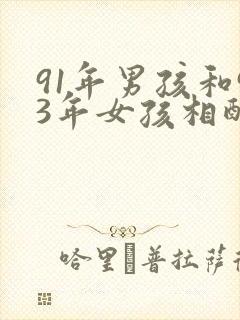 91年男孩和
3年女孩相
哈里 普拉萨